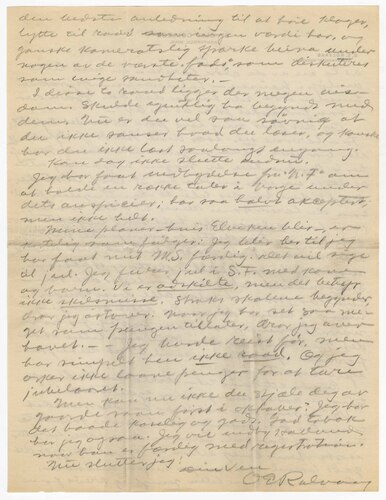 den bedste anledning til at høre klager,
lytte til raad som ingen verdi har, og
ganske kameratslig sparke beina under
nogen av de værste "fads", som diskuteres
som evige sandheter. —
I disse to raad ligger der megen vis-
dom. Skulde egentlig ha begyndt med
dem. Nu er du vel saa søvnig at
du ikke sanser hvad du læser, og kanske
har du ikke læst saa langt engang.
Kan dog ikke slutte endnu.
Jeg har faat indbydelse fra "N.F." om
at holde en række taler i Norge under
dets auspicier; har saa halvt akceptert,
men ikke helt.
Mine planer – hvis Elveken blir – er
som følger: Jeg blir her til jeg
har faat mit MS. færdig, det vil sige
til jul. Jeg feirer jul i S.F. med kone
og barn. Vi er adskilte, men det betyr
ikke skilsmisse. Straks skolene begynder,
drar jeg østover. Naar jeg har set saa me-
get som pengene tillater, drar jeg over
havet. — Jeg burde reist før, men
har simpelthen ikke raad. Og jeg
orker ikke laane penger for at ture
jubilæret.
Men kan nu ikke du stjæle dig av
gaarde saan først i oktober? Jeg har
det baade koselig og godt. God tobak
har jeg ogsaa. Jeg vil indby
naar han er færdig med registration.
Nu slutter jeg.
Din Ven
O E Rølvaag